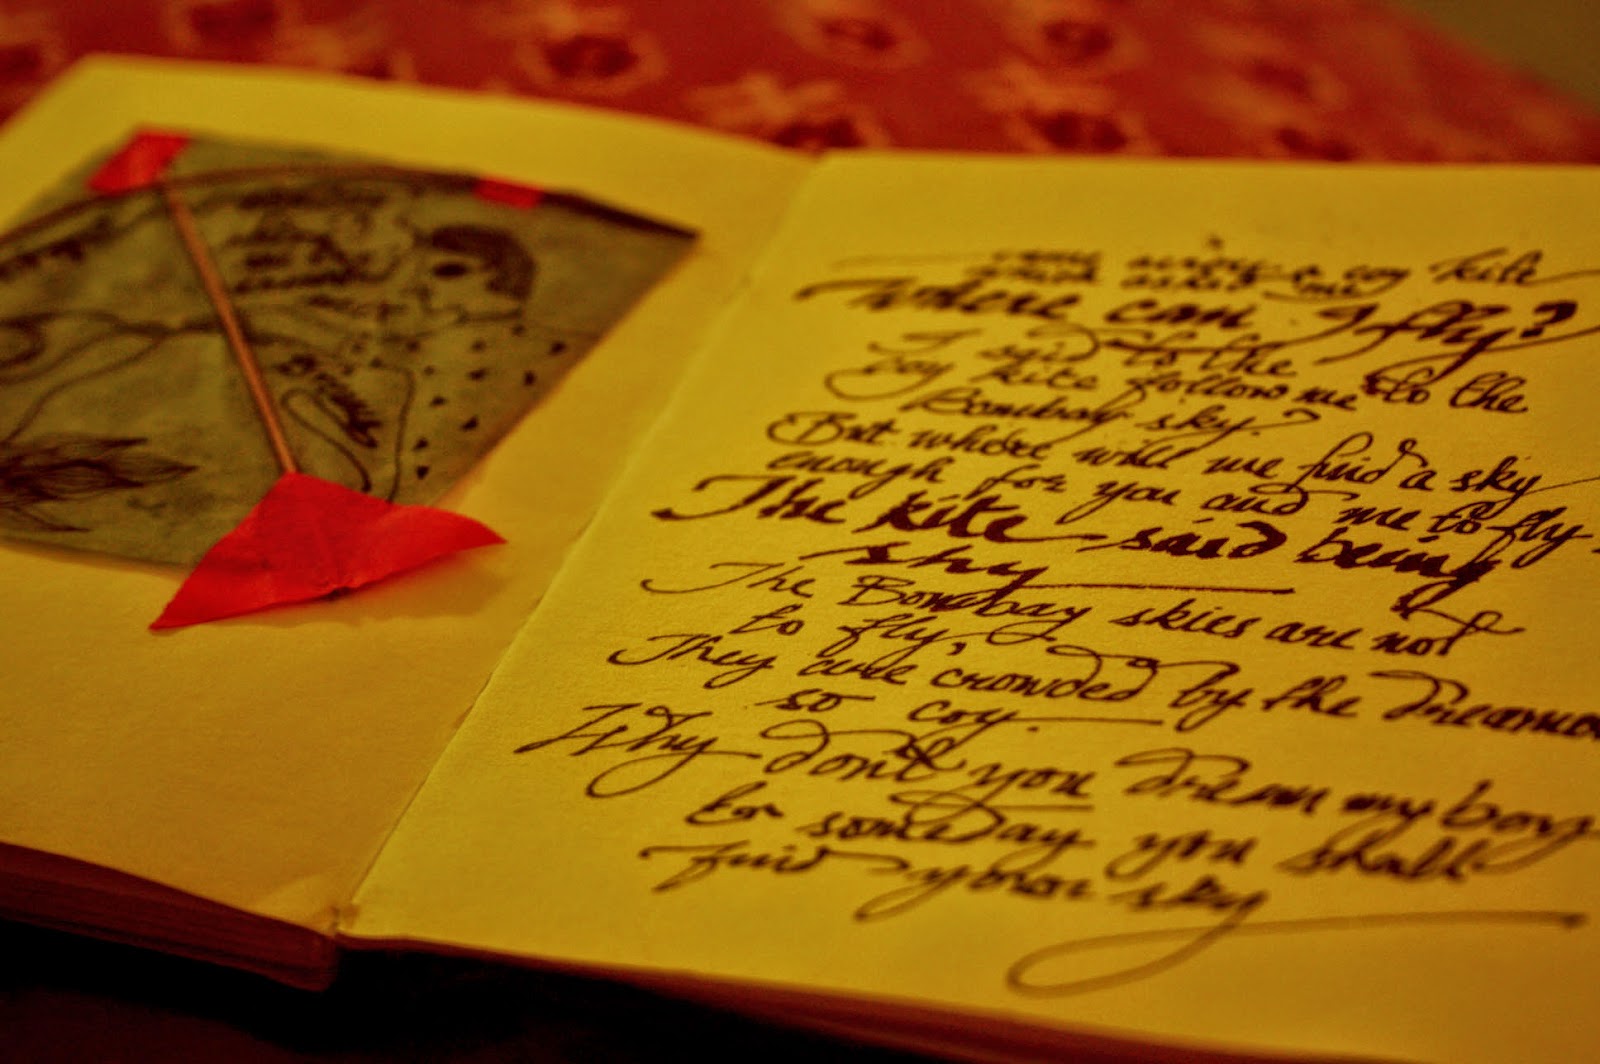 came across a coy kite
which asked me
Where can I fly?
I said to the
coy kite follow me to the
Bombay sky?
But where will we find a sky
enough for you and me to fly.
The kite said being
shy
The Bombay skies are not
to fly,
They are crowded by the
so coy
Why don't you dream my boy
for someday you shall
find your sky